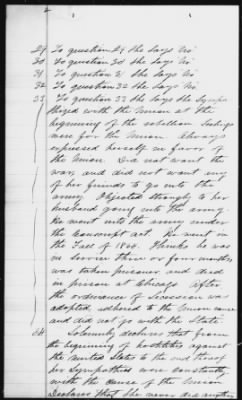 29 To question 29 she says No
30 To question 30 she says No
31 To question 31 she says No
32 To question 32 she says No
33 To question 33 she says she sympa
thized with the Union at the
beginning of the rebellion feelings
were for the Union Always
expressed herself in favor of
the Union. Did not want the
war, and did not want any
of her friends to go into the
army Objected strongly to her
husband going into the army
He went into the army under
the Conscript act. He went in
the Fall of 1864. Thinks he was
in service three or four months
was taken prisoner and died
in prison at Chicago After
the ordinance of Secession was
adopted, adhered to the Union cause
and did not go with the State
34 Solemnly declares that from
the beginning of hostilities against
the United States to the end thereof
her sympathies were constantly
with the cause of the Union
Declares that she never did anything